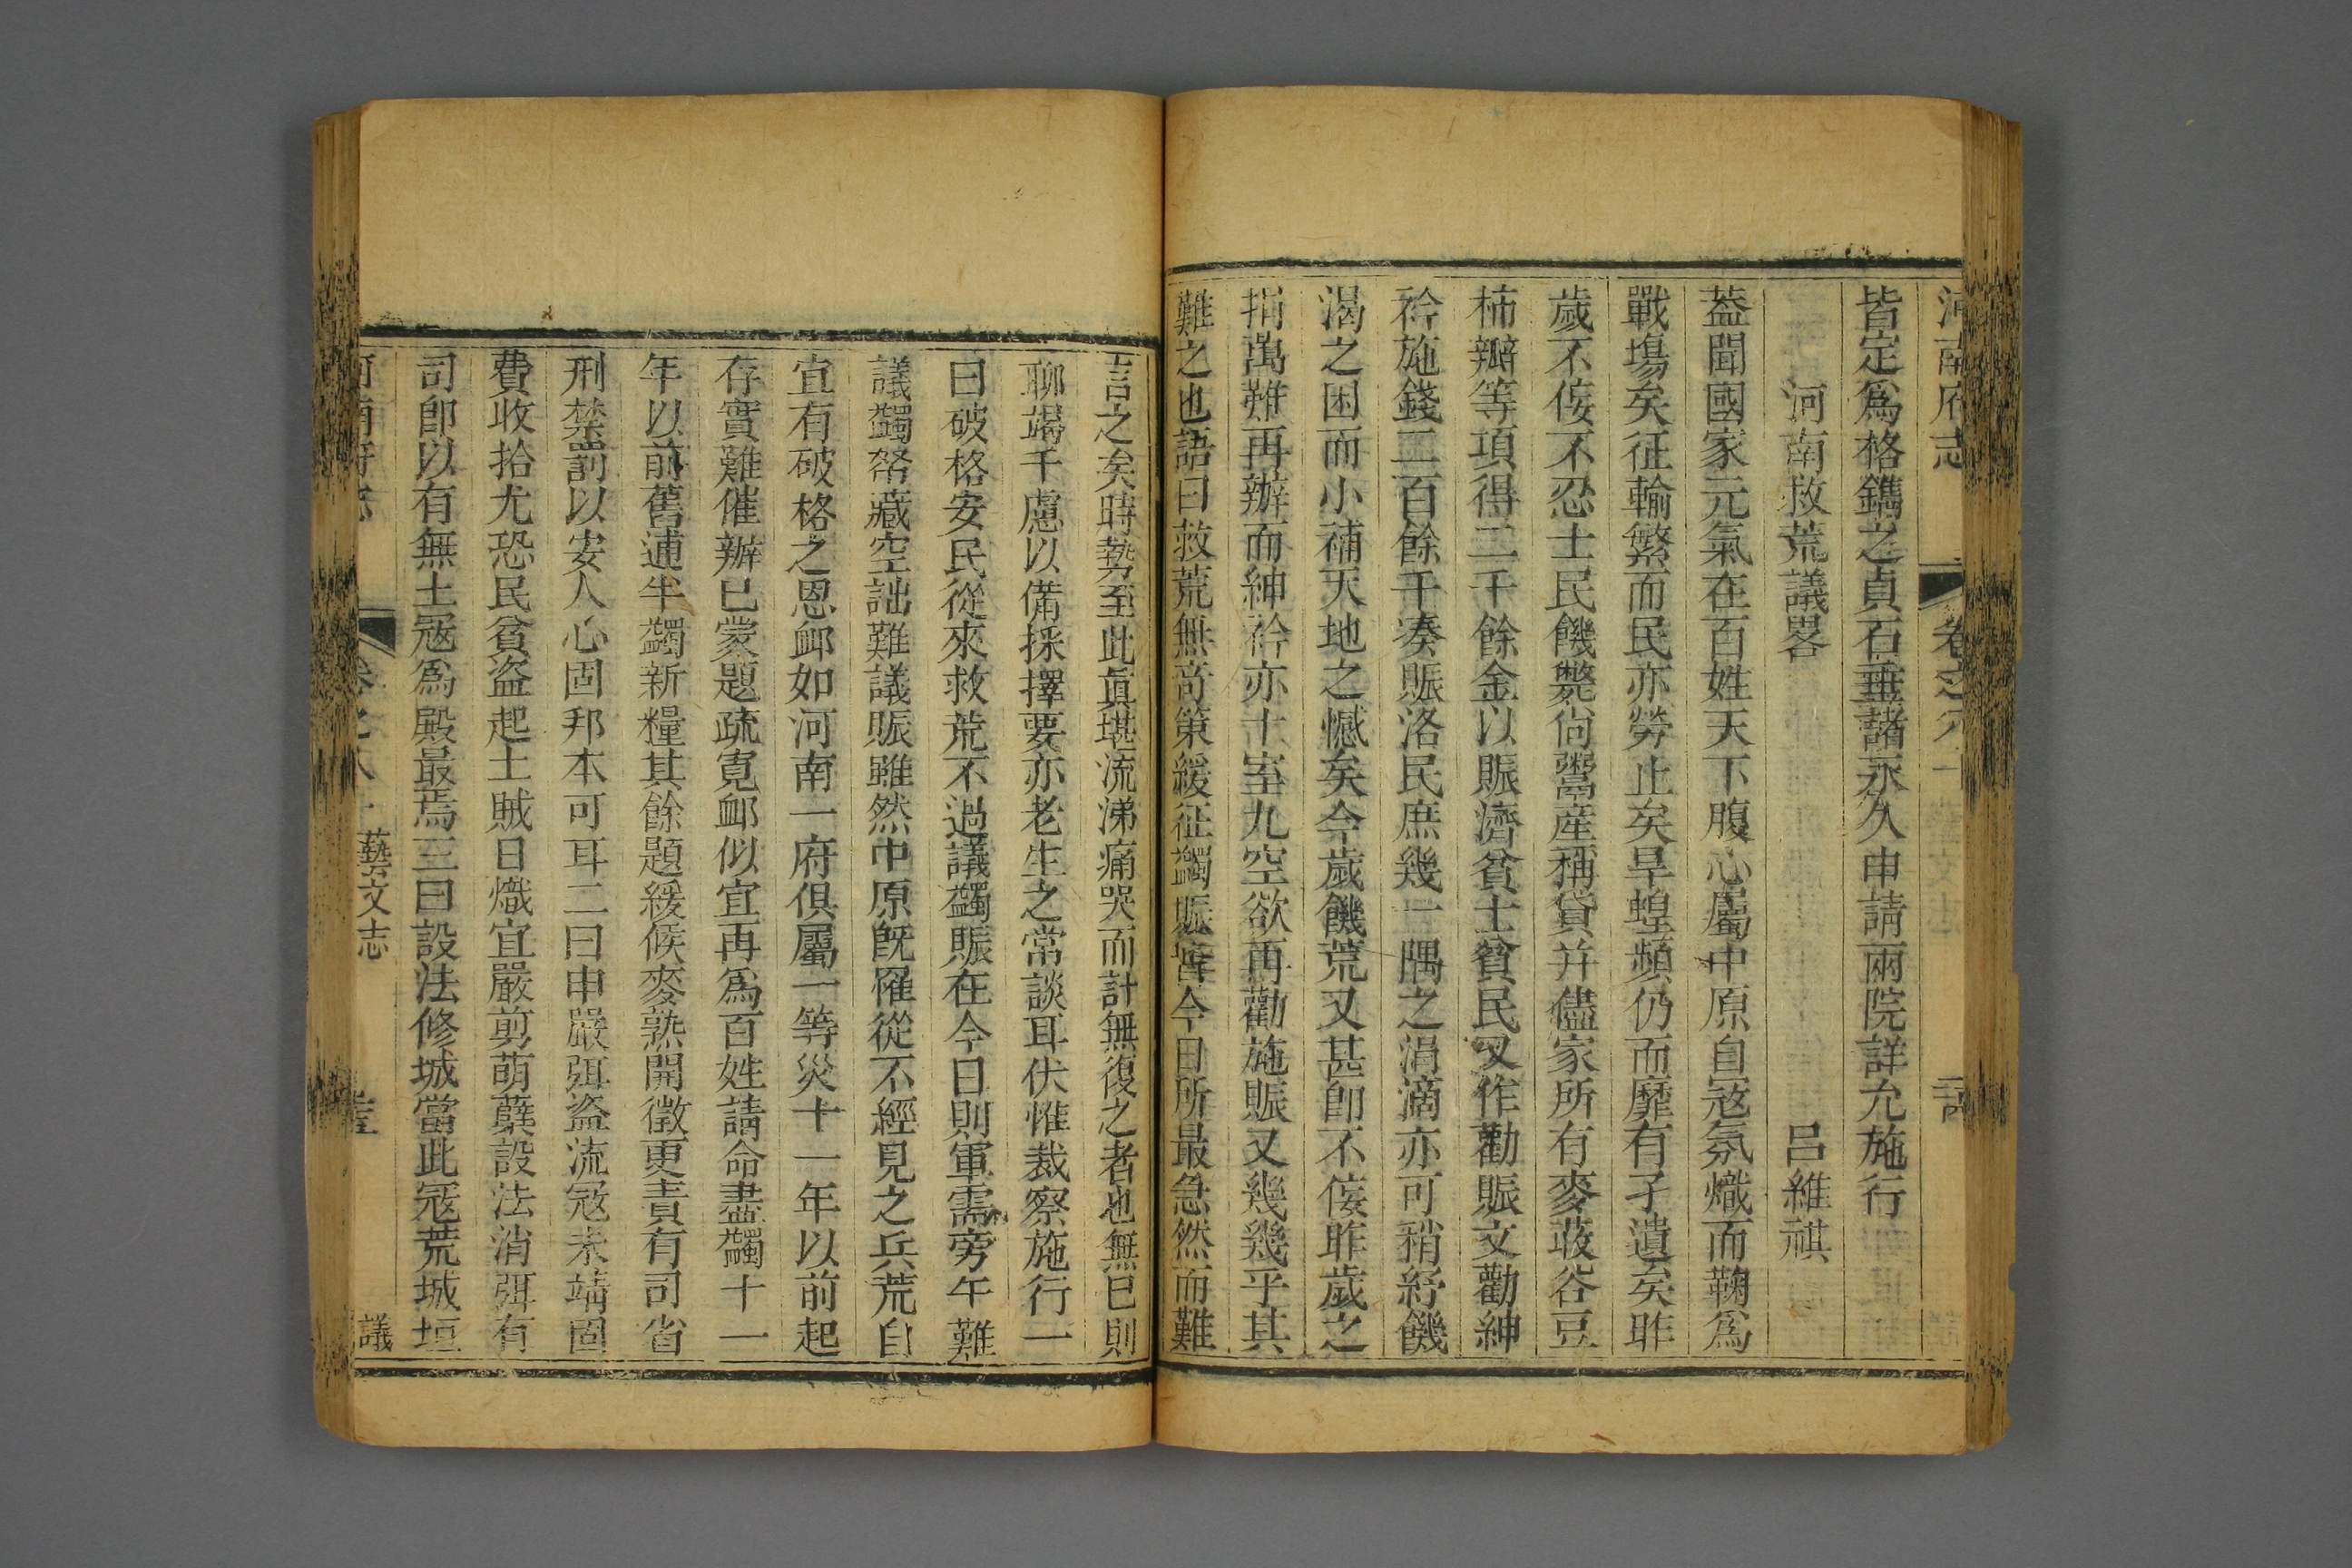 河南府志 卷之八十
皆定爲格鐫之貞石垂諸永久申請兩院詳允施行
河南救荒議畧 呂維祺
葢聞國家元氣在百姓天下腹心屬中原自冦氛熾而鞠爲
戰塲矣征輸繁而民亦勞止矣旱蝗頻仍而靡有孑遺矣昨
歲不侫不忍士民饑斃尙鬻産稱貸并儘家所有麥菽谷豆
柿瓣等項得二千餘金以賑濟貧士貧民又作勸賑文勸紳
衿施錢二百餘千湊賑洛民庶幾一隅之涓滴亦可稍紓饑
渴之困而小補天地之憾矣今歲饑荒又甚卽不侫昨歲之
捐萬難再辦而紳衿亦十室九空欲再勸施賑又幾幾乎其
難之也語曰救荒無竒策緩征蠲賑實今日所最急然而難
言之矣時勢至此眞堪流涕痛哭而計無復之者也無已則
聊竭千慮以備採擇要亦老生之常談耳伏惟裁察施行一
曰破格安民從來救荒不過議蠲賑在今日則軍需旁午難
議蠲帑藏空詘難議賑雖然中原旣罹從不經見之兵荒自
宜有破格之恩䘏如河南一府俱屬一等災十一年以前起
存實難催辦已蒙題疏寬䘏似宜再爲百姓請命盡蠲十一
年以前舊逋半蠲新糧其餘題緩候麥熟開徵更責有司省
刑禁罰以安人心固邦本可耳二曰申嚴弭盗流冦未靖固
費收拾尤恐民貧盗起土賊日熾宜嚴剪萌蘖設法消弭有
司卽以有無土冦爲殿最焉三曰設法修城當此冦荒城垣
河南府志 卷之八十 藝文志 議